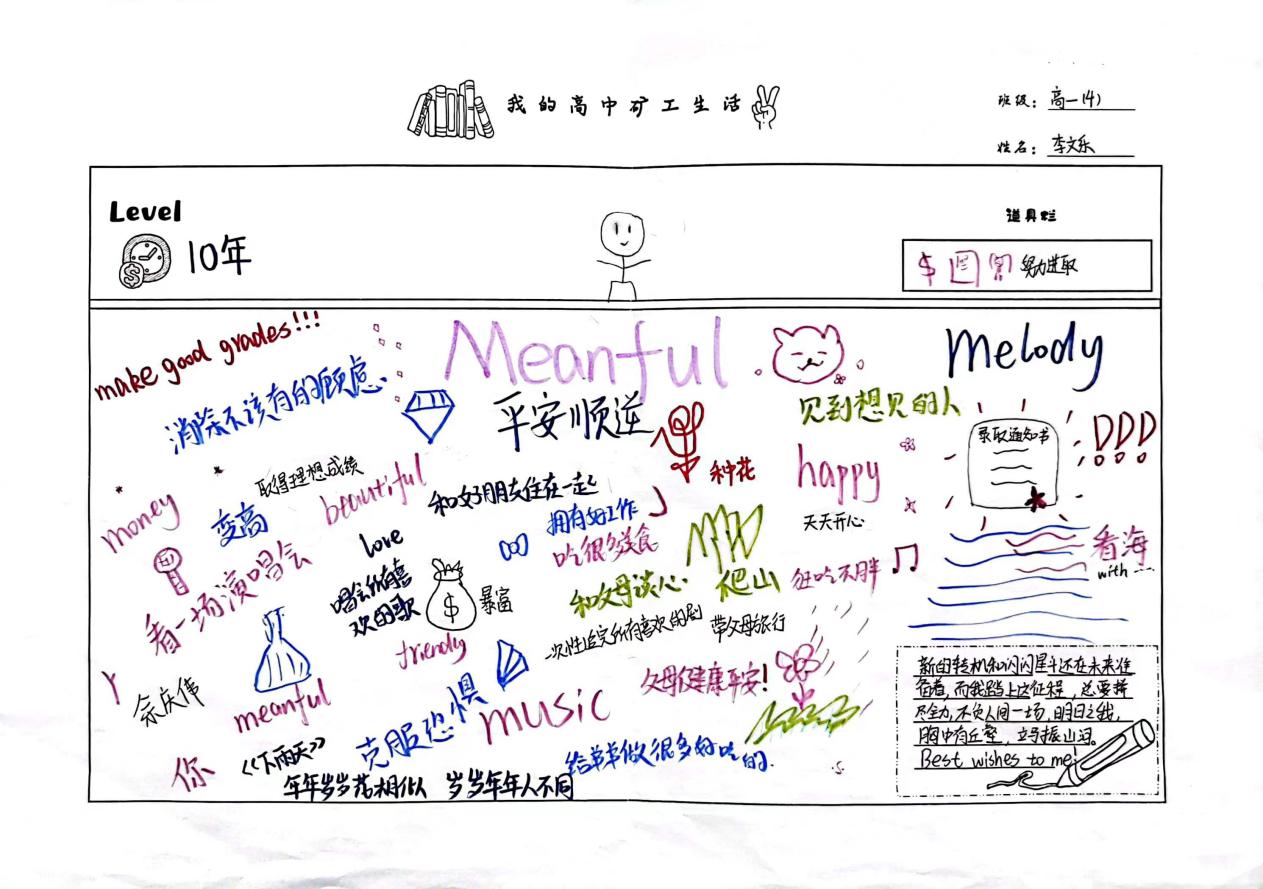 我的高中矿工生活
班级：高一(4)
姓名：李文乐
Level
10年
道具栏
努力进取
make good grades!!!
Meanful
Melody
消除不该有的顾虑
平安顺遂
见到想见的人
录取通知书
取得理想成绩
beautiful
和好朋友住在一起
种花
happy
money
变高
拥有好工作
天天开心
love
吃很多美食
看海
with
看一场演唱会
唱会所有喜
欢的歌
暴富
和父母谈心
爬山
狂吃不胖
friendly
一次性追完所有喜欢的剧
带父母旅行
父母健康平安!
余庆伟
meanful
克服恐惧
music
你
《下雨天》
给弟弟做很多好吃的
年年岁岁花相似 岁岁年年人不同
新的转机和闪闪星斗还在未来准
备着,而我踏上这征程,总要拼
尽全力,不负人间一场,明日之我,
胸中有丘壑,立马振山河。
Best wishes to me